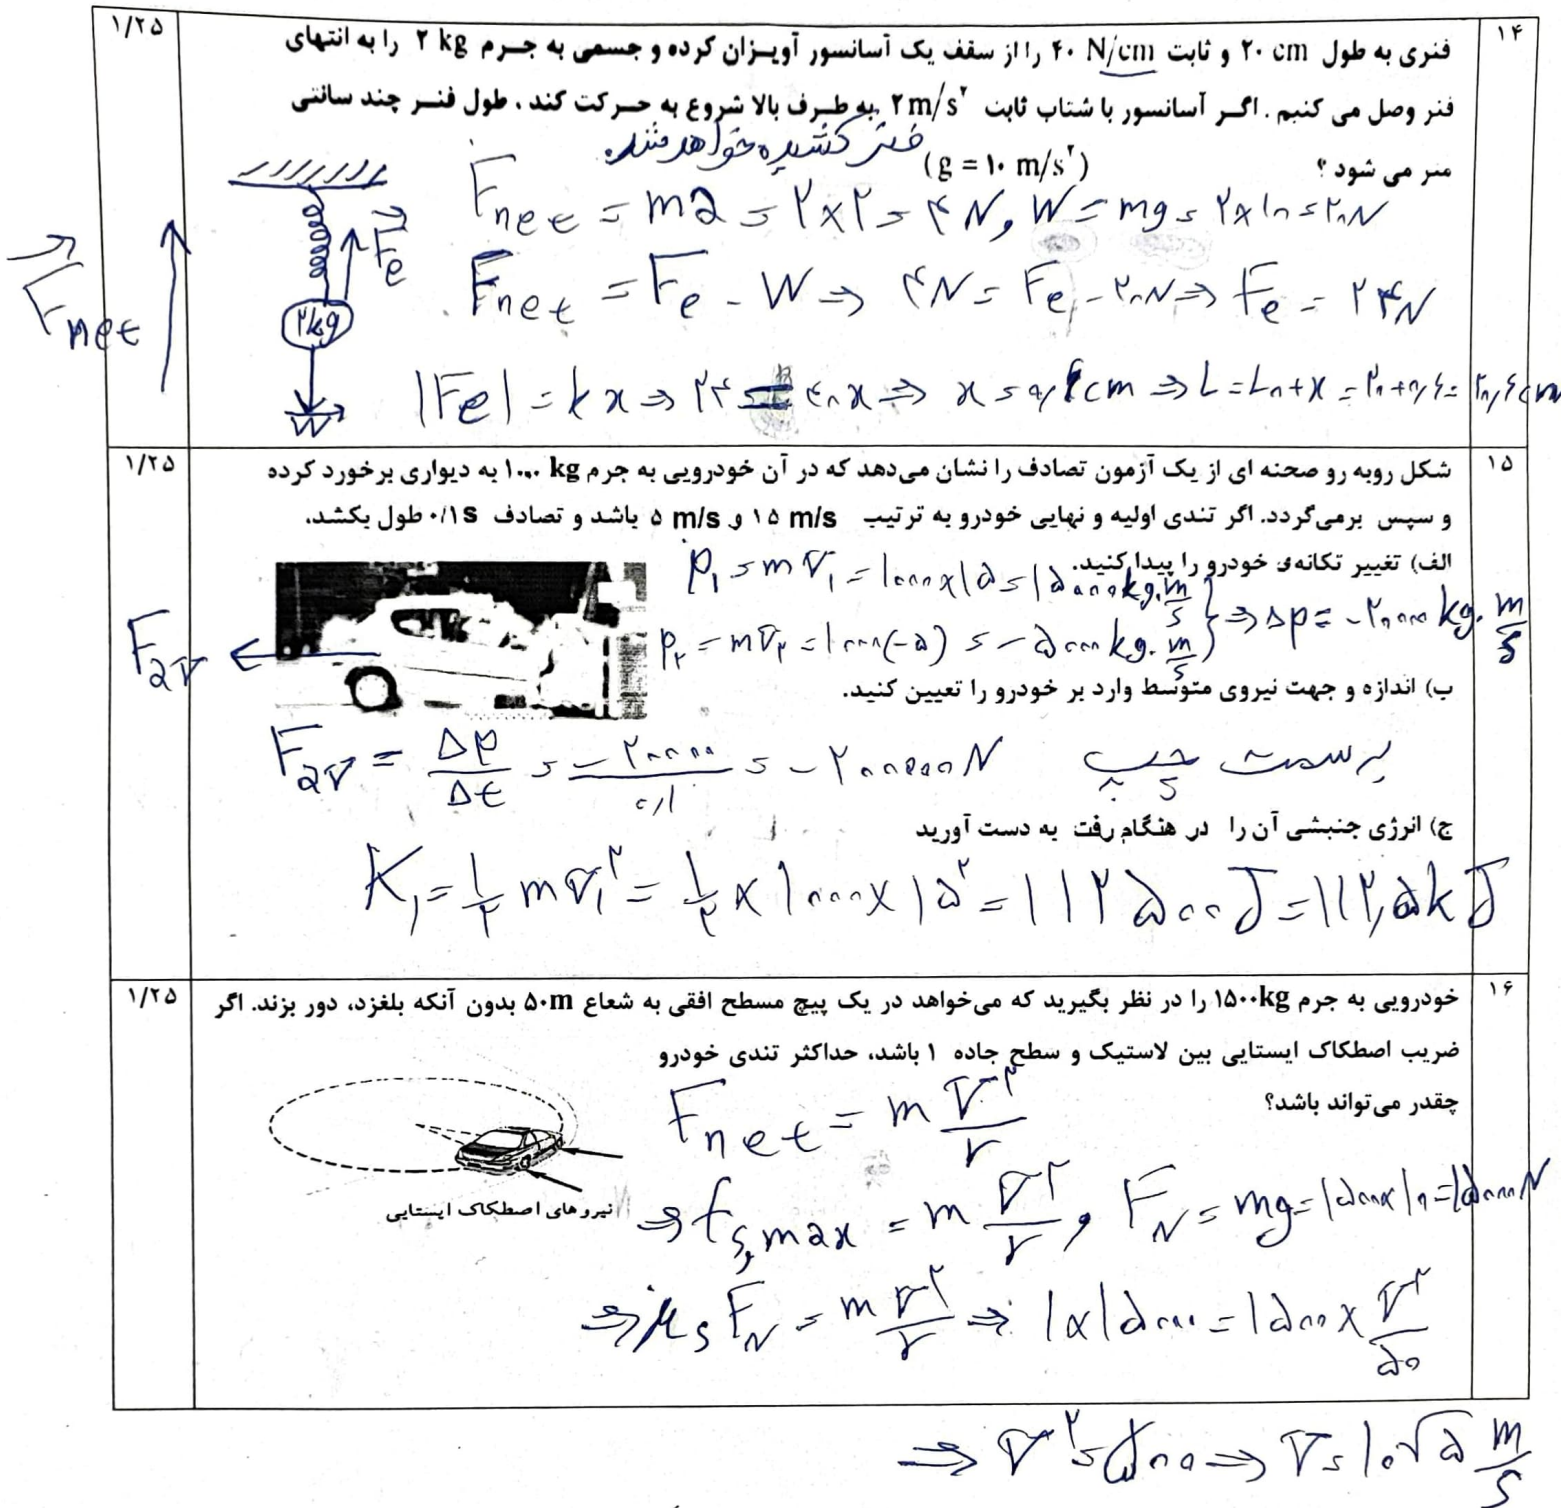 ۱۴
۱/۲۵
فنری به طول ۲۰ cm و ثابت ۴۰ N/cm را از سقف یک آسانسور آویزان کرده و جسمی به جرم ۲ kg را به انتهای
فنر وصل می کنیم . اگر آسانسور با شتاب ثابت ۲ m/s² به طرف بالا شروع به حرکت کند ، طول فنر چند سانتی
متر می شود ؟ (g = ۱۰ m/s²)
فنر کشیده خواهد شد.
F_net = ma = ۲×۲ = ۴ N, W = mg = ۲×۱۰ = ۲۰ N
F_net = F_e - W ⇒ ۴N = F_e - ۲۰N ⇒ F_e = ۲۴N
|Fe| = kx ⇒ ۲۴ = ۴۰x ⇒ x = ۰٫۶cm ⇒ L = L₀+x = ۲۰+۰٫۶ = ۲۰٫۶cm
F_net
F_e
۲kg
W
۱۵
۱/۲۵
شکل روبه رو صحنه ای از یک آزمون تصادف را نشان می‌دهد که در آن خودرویی به جرم ۱۰۰۰ kg به دیواری برخورد کرده
و سپس برمی‌گردد. اگر تندی اولیه و نهایی خودرو به ترتیب ۱۵ m/s و ۵ m/s باشد و تصادف ۰/۱s طول بکشد،
الف) تغییر تکانه‌ی خودرو را پیدا کنید.
P₁ = mv₁ = ۱۰۰۰×۱۵ = ۱۵۰۰۰ kg.m/s
P₂ = mv₂ = ۱۰۰۰(-۵) = -۵۰۰۰ kg.m/s } ⇒ Δp = -۲۰۰۰۰ kg.m/s
F_av
ب) اندازه و جهت نیروی متوسط وارد بر خودرو را تعیین کنید.
F_av = ΔP/Δt = -۲۰۰۰۰/۰٫۱ = -۲۰۰۰۰۰ N به سمت چپ
ج) انرژی جنبشی آن را در هنگام رفت به دست آورید
K₁ = ۱/۲ mv₁² = ۱/۲ × ۱۰۰۰ × ۱۵² = ۱۱۲۵۰۰ J = ۱۱۲٫۵ kJ
۱۶
۱/۲۵
خودرویی به جرم ۱۵۰۰kg را در نظر بگیرید که می‌خواهد در یک پیچ مسطح افقی به شعاع ۵۰m بدون آنکه بلغزد، دور بزند. اگر
ضریب اصطکاک ایستایی بین لاستیک و سطح جاده ۱ باشد، حداکثر تندی خودرو
چقدر می‌تواند باشد؟
نیروهای اصطکاک ایستایی
F_net = m v²/r
⇒ f_s,max = m v²/r , F_N = mg = ۱۵۰۰×۱۰ = ۱۵۰۰۰ N
⇒ μ_s F_N = m v²/r ⇒ ۱×۱۵۰۰۰ = ۱۵۰۰ × v²/۵۰
⇒ v² = ۵۰۰ ⇒ v = ۱۰√۵ m/s